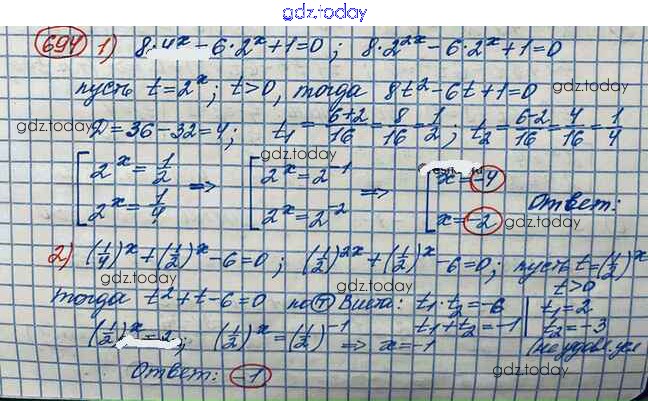 gdz.today
694 1) 8·4^x - 6·2^x + 1 = 0; 8·2^{2x} - 6·2^x + 1 = 0
пусть t = 2^x; t > 0, тогда 8t² - 6t + 1 = 0
gdz.today gdz.today
D = 36 - 32 = 4; t₁ = (6+2)/16 = 8/16 = 1/2; t₂ = (6-2)/16 = 4/16 = 1/4
gdz.today gdz.today
[ 2^x = 1/2 => [ 2^x = 2^{-1} => [ x = -1
[ 2^x = 1/4 [ 2^x = 2^{-2} [ x = -2 Ответ:
gdz.today gdz.today
2) (1/4)^x + (1/2)^x - 6 = 0; (1/2)^{2x} + (1/2)^x - 6 = 0; пусть t = (1/2)^x
t > 0
gdz.today gdz.today
тогда t² + t - 6 = 0 по Т Виета: t₁·t₂ = -6 | t₁ = 2
t₁ + t₂ = -1 | t₂ = -3
(1/2)^x = 2; (1/2)^x = (1/2)^{-1} => x = -1 (не удовл. усл
gdz.today gdz.today
Ответ: -1